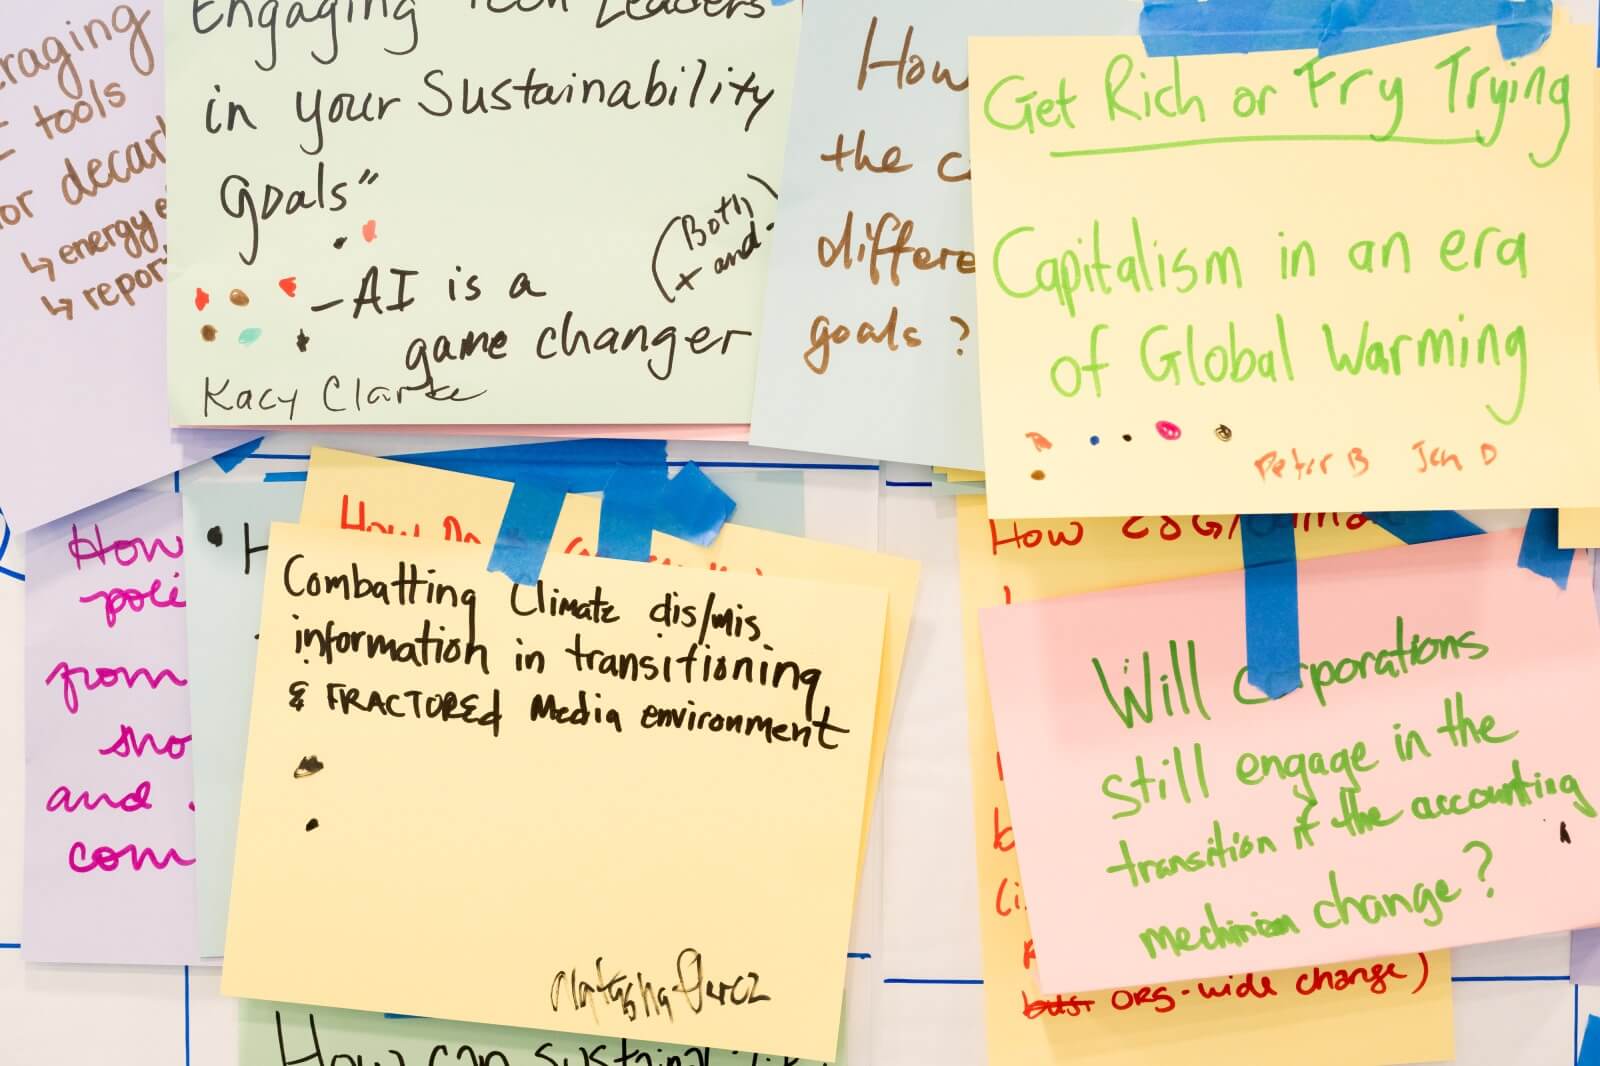 eraging
tools
or decar
↳ energy e
↳ repor
Engaging Tech Leaders
in your Sustainability
goals"
(Both
+ and)
- AI is a
game changer
Kacy Clarke
How
the c
differe
goals?
Get Rich or Fry Trying
Capitalism in an era
of Global Warming
Peter B Jen D
How
poli
from
sho
and
com
H
How Do
Combatting Climate dis/mis
information in transitioning
& FRACTORED Media environment
Natasha
How can sustainabili
How ESG/
Will corporations
still engage in the
transition if the accounting
mechinism change?
b
(i
bust ORG-wide change)